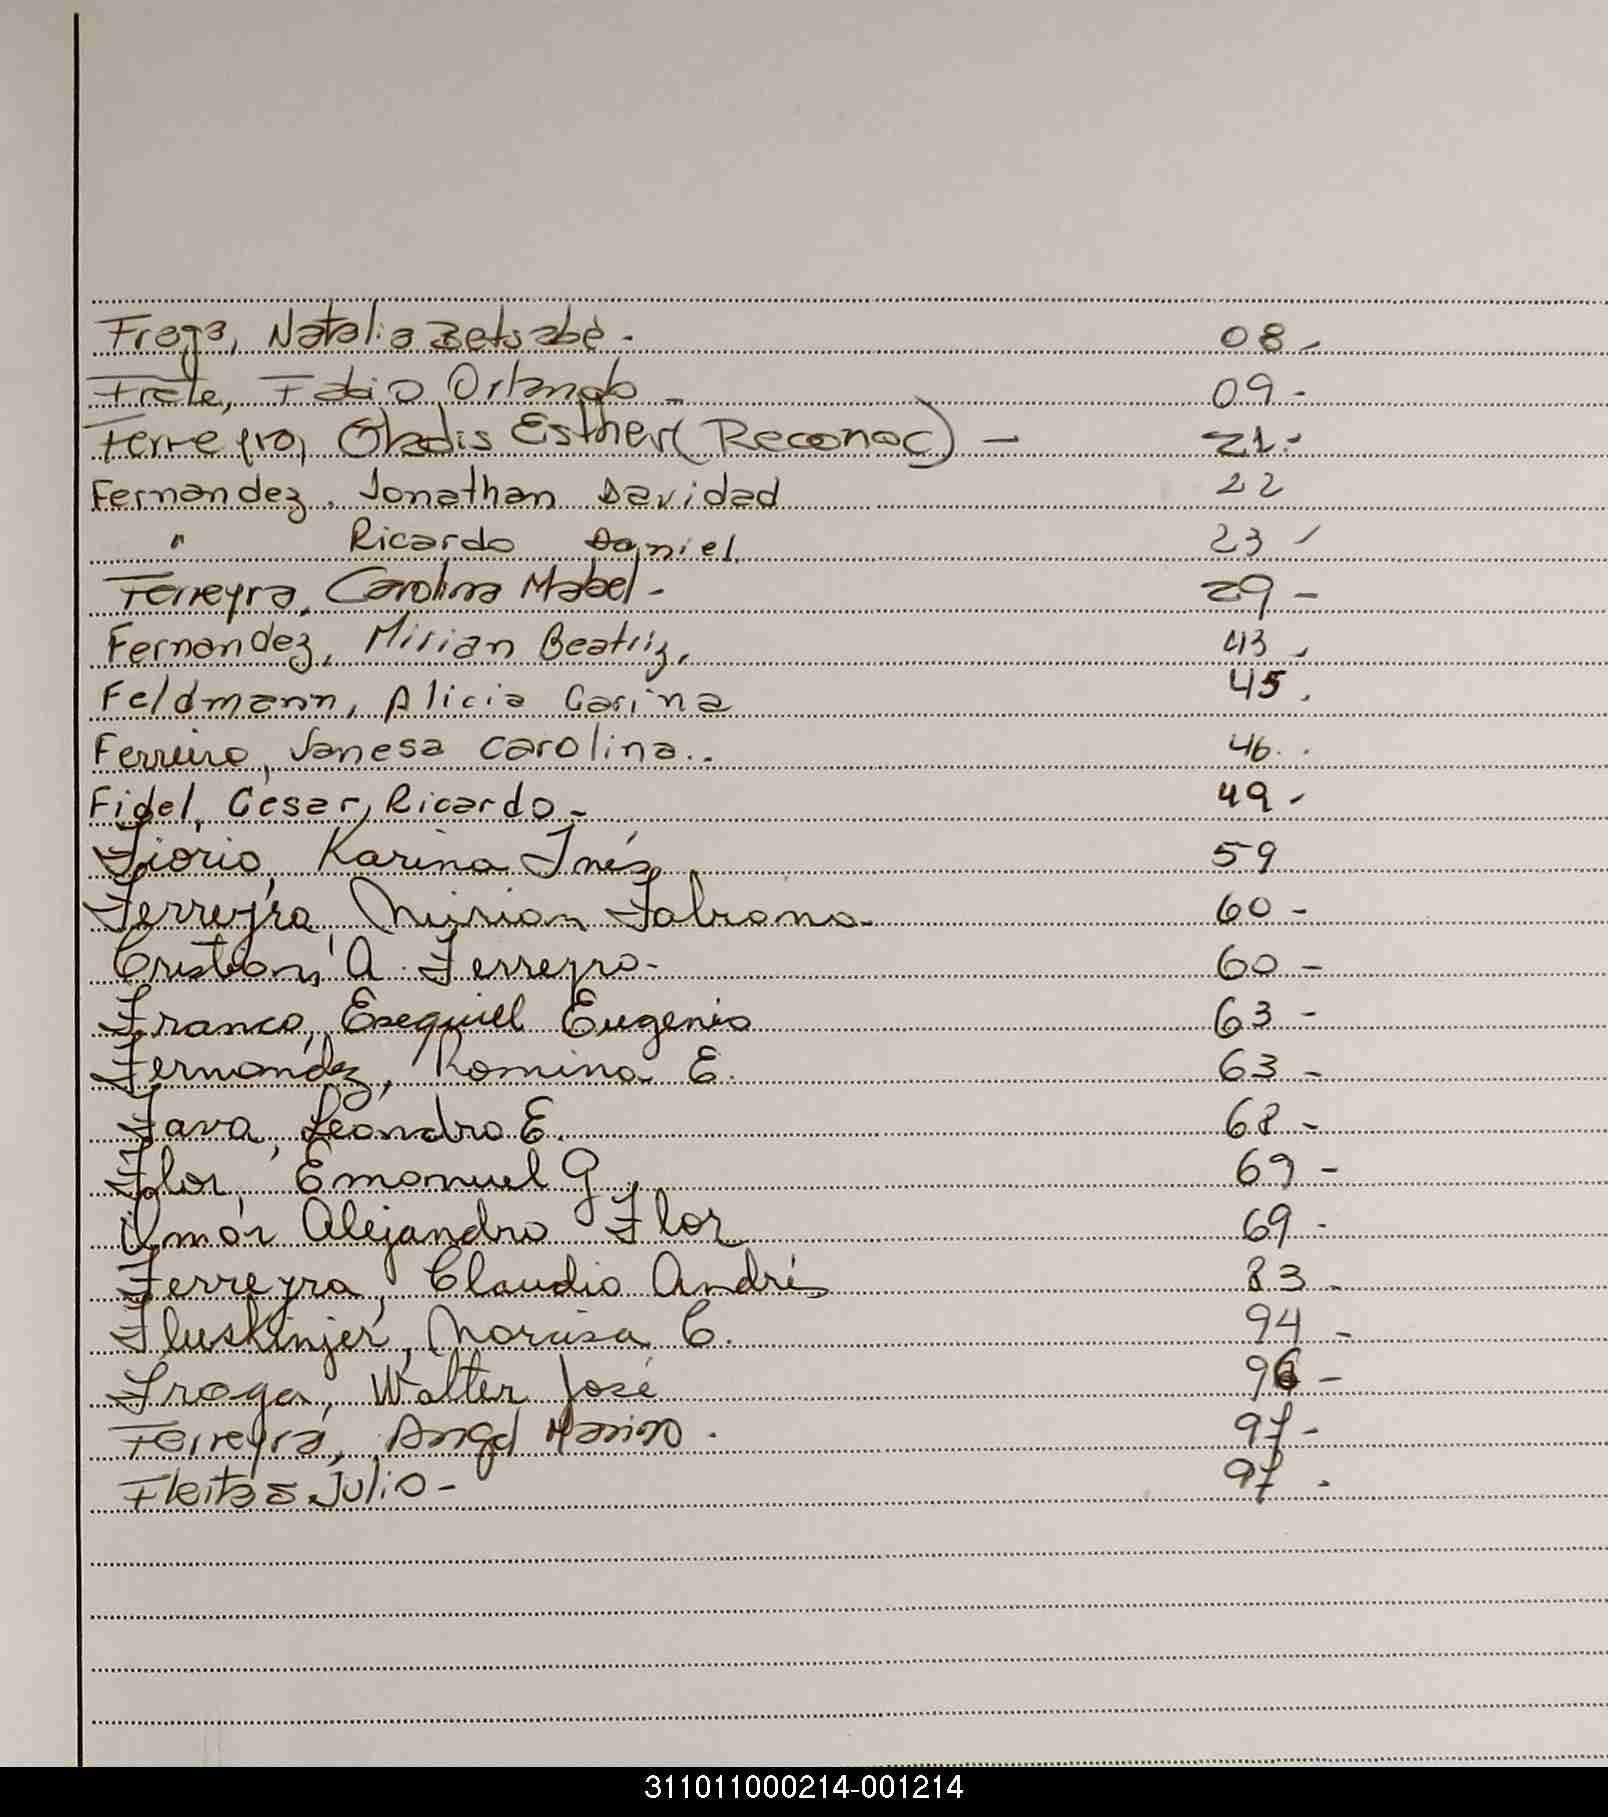 Fraga, Natalia Betsabé. 08-
Frete, Fabio Orlando - 09-
Ferreyra, Gladis Esther (Reconoc) - 21-
Fernandez, Jonathan Davidad 22
" Ricardo Daniel 23-
Ferreyra, Carolina Mabel- 29-
Fernandez, Mirian Beatriz. 43.
Feldmann, Alicia Carina 45.
Ferreiro, Vanesa Carolina.. 46..
Fidel, César, Ricardo- 49-
Fiorio, Karina Inés 59
Ferreyra, Mirian Fabiana- 60-
Cristian, A. Ferreyra- 60-
Franco, Exequiel Eugenio 63-
Fernández, Romina E. 63-
Fava, Leandro E. 68-
Flor, Emanuel G. 69-
Omár Alejandro Flor 69-
Ferreyra, Claudio Andrés 83-
Fluskinjer, C. 94-
Fraga, Walter José 96-
Ferreyra, Angel Marino. 97-
Fleitas Julio- 97.
311011000214-001214